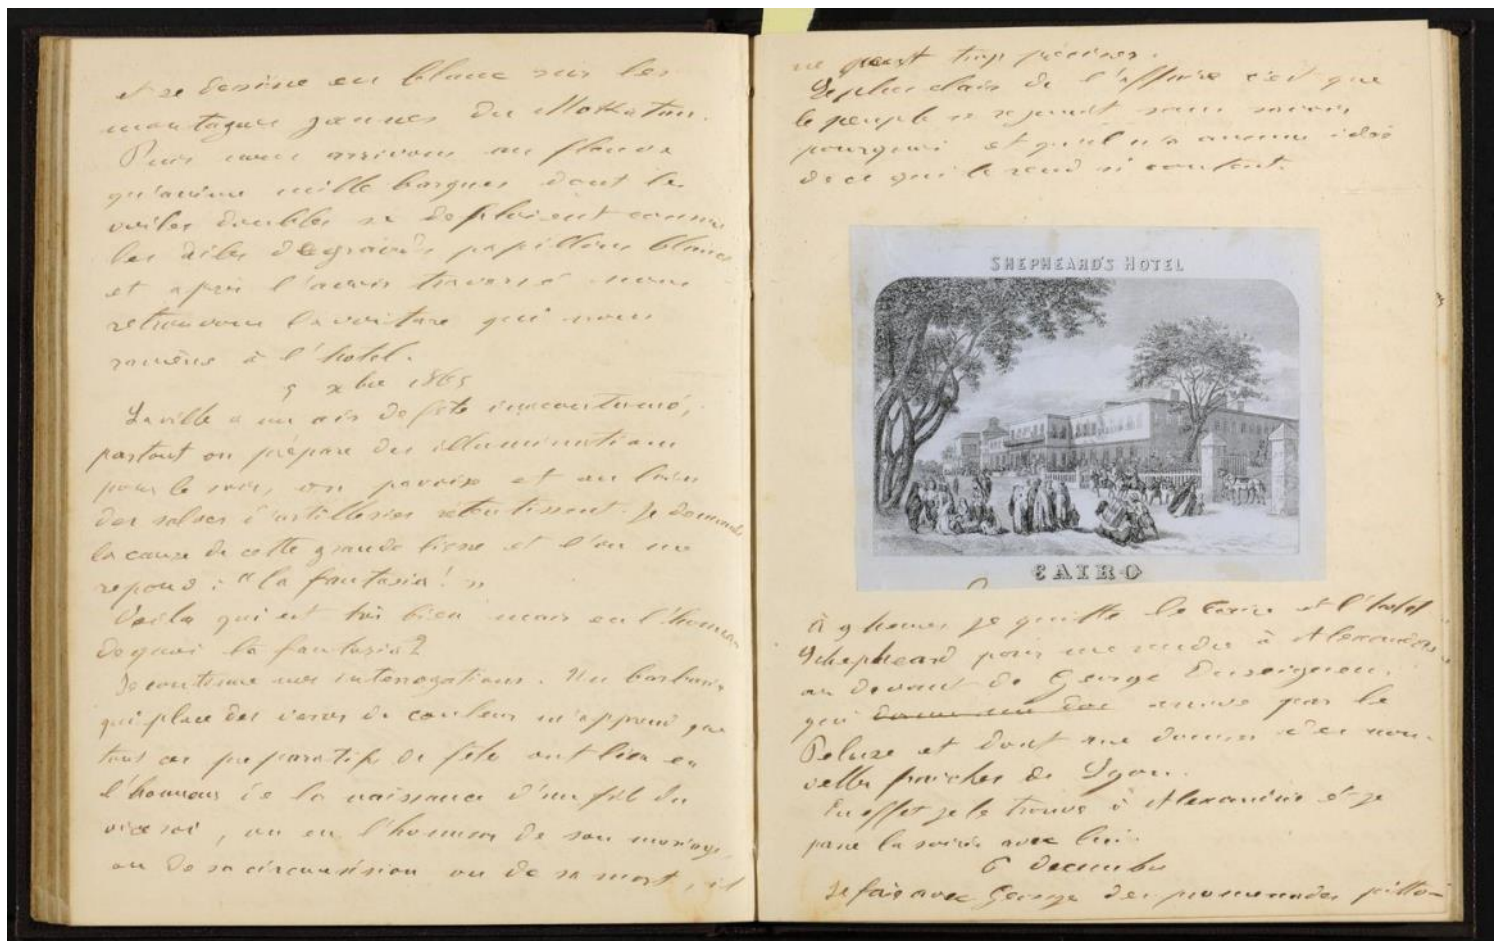 et se dessine en blanc sur les
montagnes jaunes du Mokatan.
Puis nous arrivons au fleuve
qu'anime mille barques dont les
voiles doubles se deploient comme
les ailes de grands papillons blancs
et après l'avoir traversé nous
retrouvons la voiture qui nous
ramène à l'hotel.
5 xbre 1865
La ville a un air de fête inaccoutumé,
partout on prépare des illuminations
pour le soir, on pavoise et au loin
des salves d'artilleries retentissent. Je demande
la cause de cette grande liesse et l'on me
repond : "la fantasia! "
Voila qui est très bien mais en l'honneur
de quoi la fantasia?
Je continue mes interrogations. Un barbarin
qui place des verres de couleur m'apprend que
tous ces preparatifs de fête ont lieu en
l'honneur de la naissance d'un fils du
vice roi, ou en l'honneur de son mariage,
ou de sa circoncision ou de sa mort, il
ne peut trop préciser.
Le plus clair de l'affaire c'est que
le peuple se rejouit sans savoir
pourquoi et qu'il n'a aucune idée
de ce qui le rend si content.
SHEPHEARD'S HOTEL
CAIRO
A 9 heures je quitte le Caire et l'hotel
Shepheard pour me rendre à Alexandrie
au devant de George
qui arrive par le
Peluse et doit me donner des nou-
velles fraiches de Lyon.
En effet je le trouve à Alexandrie et je
passe la soirée avec lui.
6 decembre
Je fais avec George des promenades pitto-